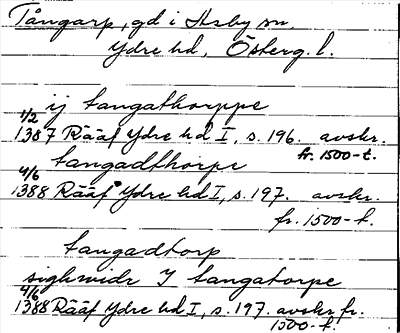 Tångarp, gd i Asby sn,
Ydre hd, Österg. l.
ij tangathorppe
1/2
1387 Rääf Ydre hd I, s. 196. avskr.
fr. 1500-t.
tangadthorpe
4/6
1388 Rääf Ydre hd I, s. 197. avskr.
fr. 1500-t.
tangadtorp
sighwidr J tangatorpe
4/6
1388 Rääf Ydre hd I, s. 197. avskr. fr.
1500-t.